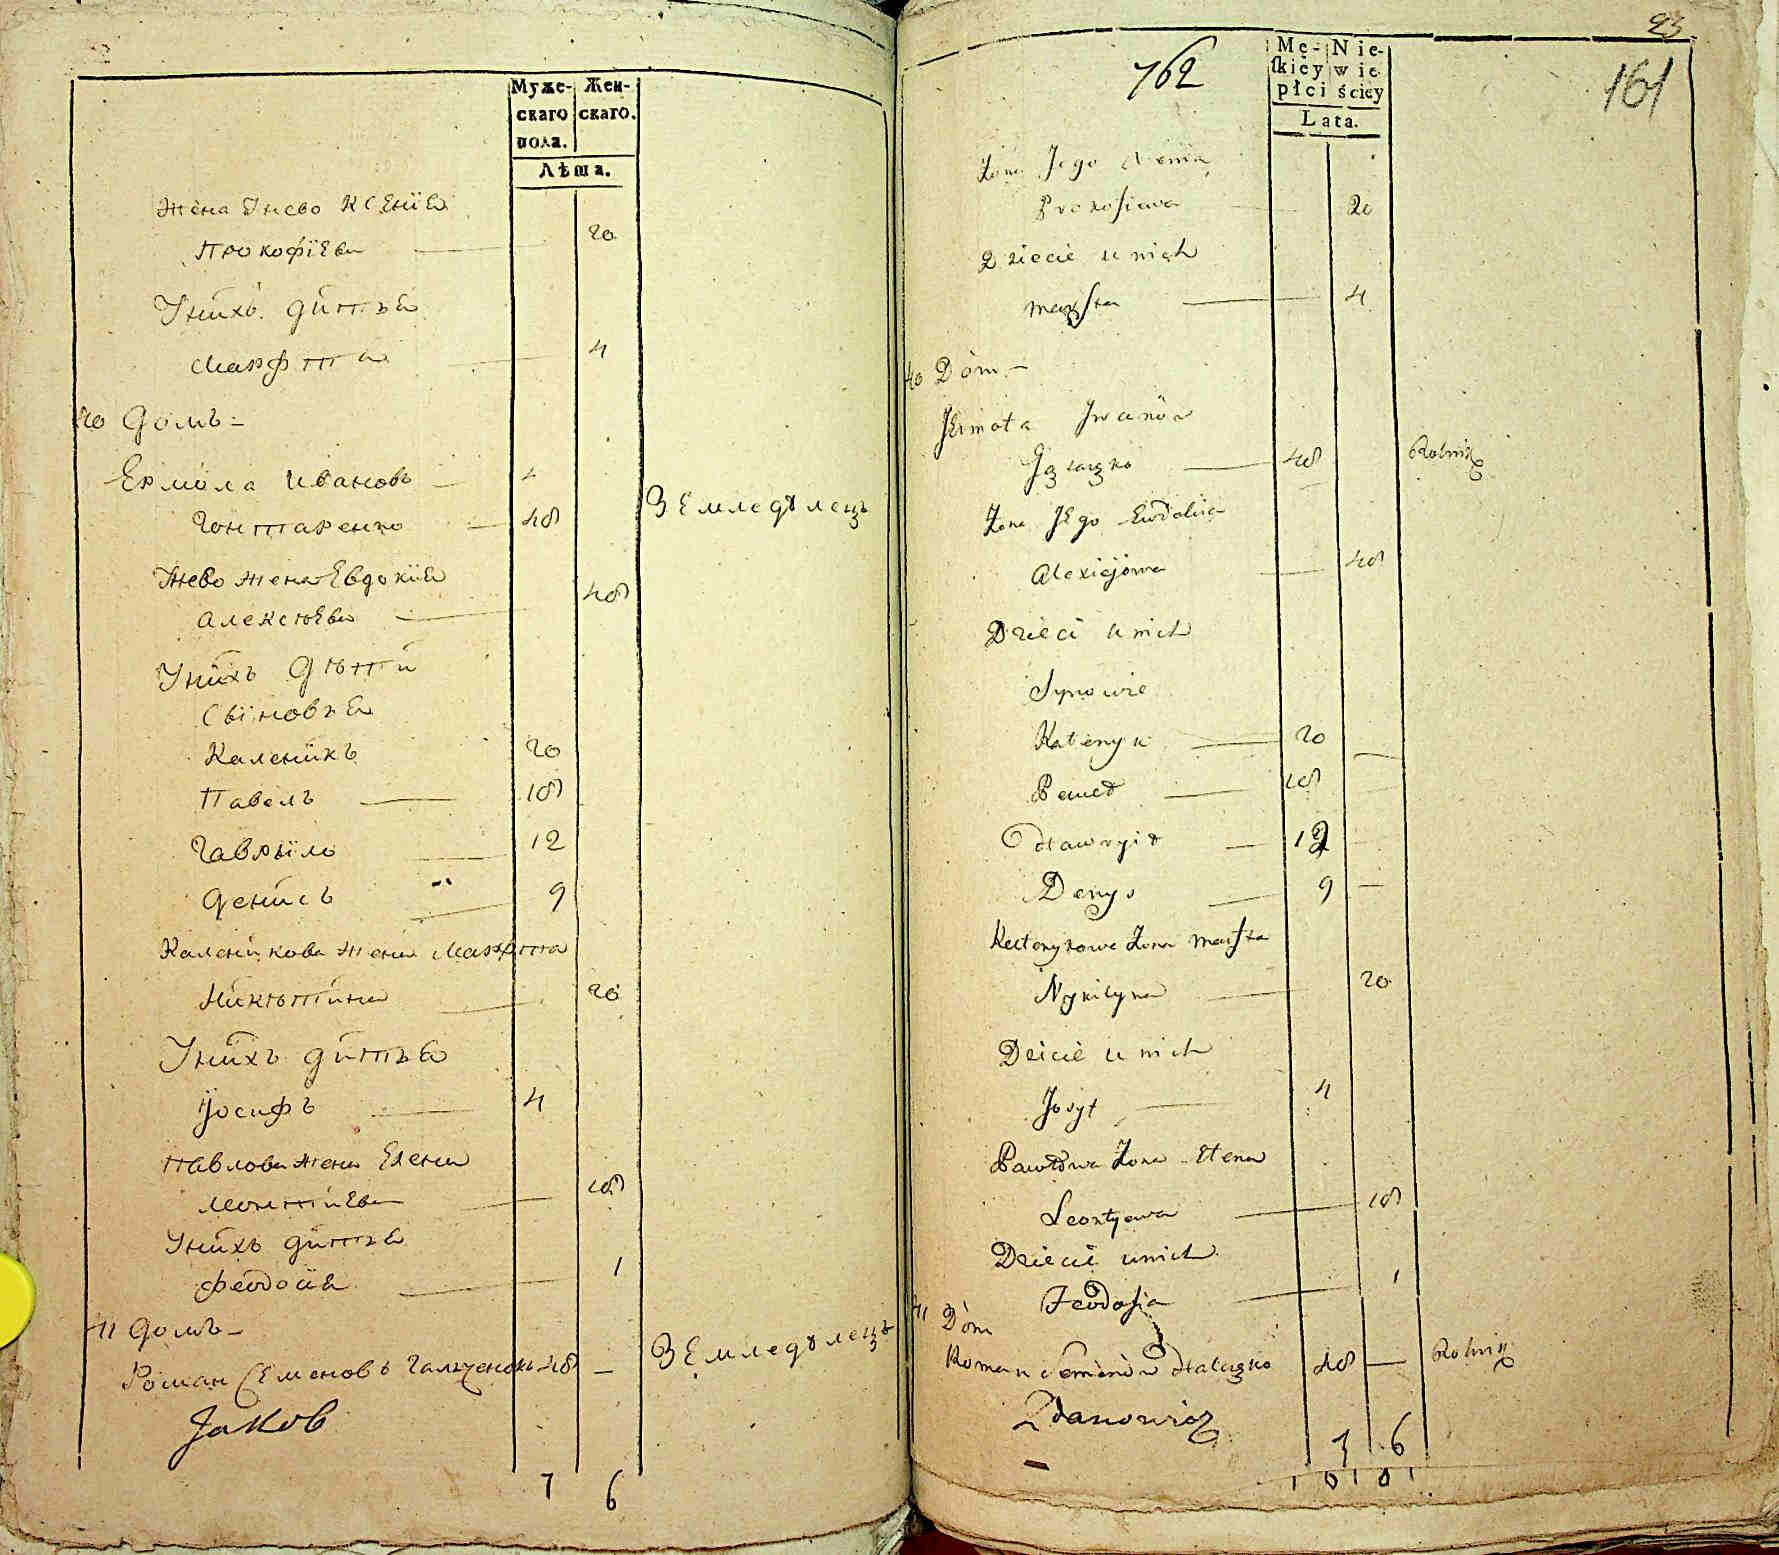 Муже-
скаго
пола.
Жен-
скаго.
Лѣта.
Жена Унево Ксенїя
Прокофїева 20
Унихъ дитя
Марфта 4
40 Домъ
Ермола Ивановъ
Гонтаренко 48 Земледѣлецъ
Унево жена Евдокия
Алексѣева 48
Унихъ дѣти
Сыновя
Каленикъ 20
Павелъ 18
Гаврыло 12
Денисъ 9
Каленикова жена Марфта
Никитина 20
Унихъ дитя
Иосифъ 4
Павлова жена Елена
Леонтиева 18
Унихъ дитя
Феодосия 1
41 Домъ
Роман Семеновъ 48 — Земледѣлецъ
Jakob
7 6
93
762
161
Mę-
skiey
płci
Nie-
wie-
ściey
Lata.
Żona Jego
Prokofiewa 20
Dziecie u nich
Marfta 4
40 Dóm
Iwanów
48 Rolnik
Żona Jego Eudokia
Alexiejowa 48
Dzieci u nich
Synowie
Kalenyk 20
Paweł 18
Hawryło 12
Denys 9
Kalenykowa Żona Marfta
Nykityna 20
Dziecie u nich
Josyf 4
Pawłowa Żona Elena
Leontyewa 18
Dziecie u nich
Feodosia 1
41 Dóm
Roman Semenów 48 — Rolnik
Zdanowicz
7 6